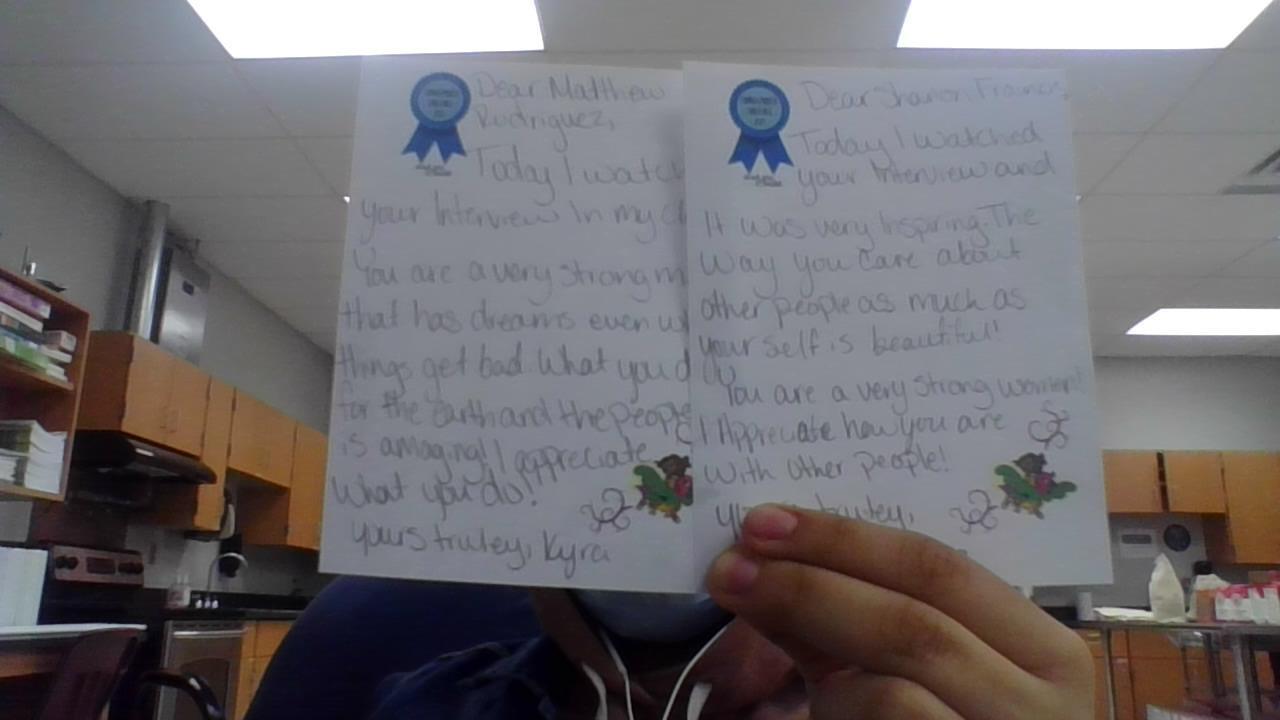 Dear Matthew
Rodriguez,
Today I watch
your Interview In my
You are a very strong m
that has dreams even
things get bad. What you d
for the earth and the people
is amazing! I appreciate
What you do!
yours truley, Kyra
Dear Sharon
Today I watched
your Interview and
It was very Inspiring. The
Way you care about
other people as much as
your self is beautiful!
You are a very strong women!
I Appreciate how you are
With other people!
truley,